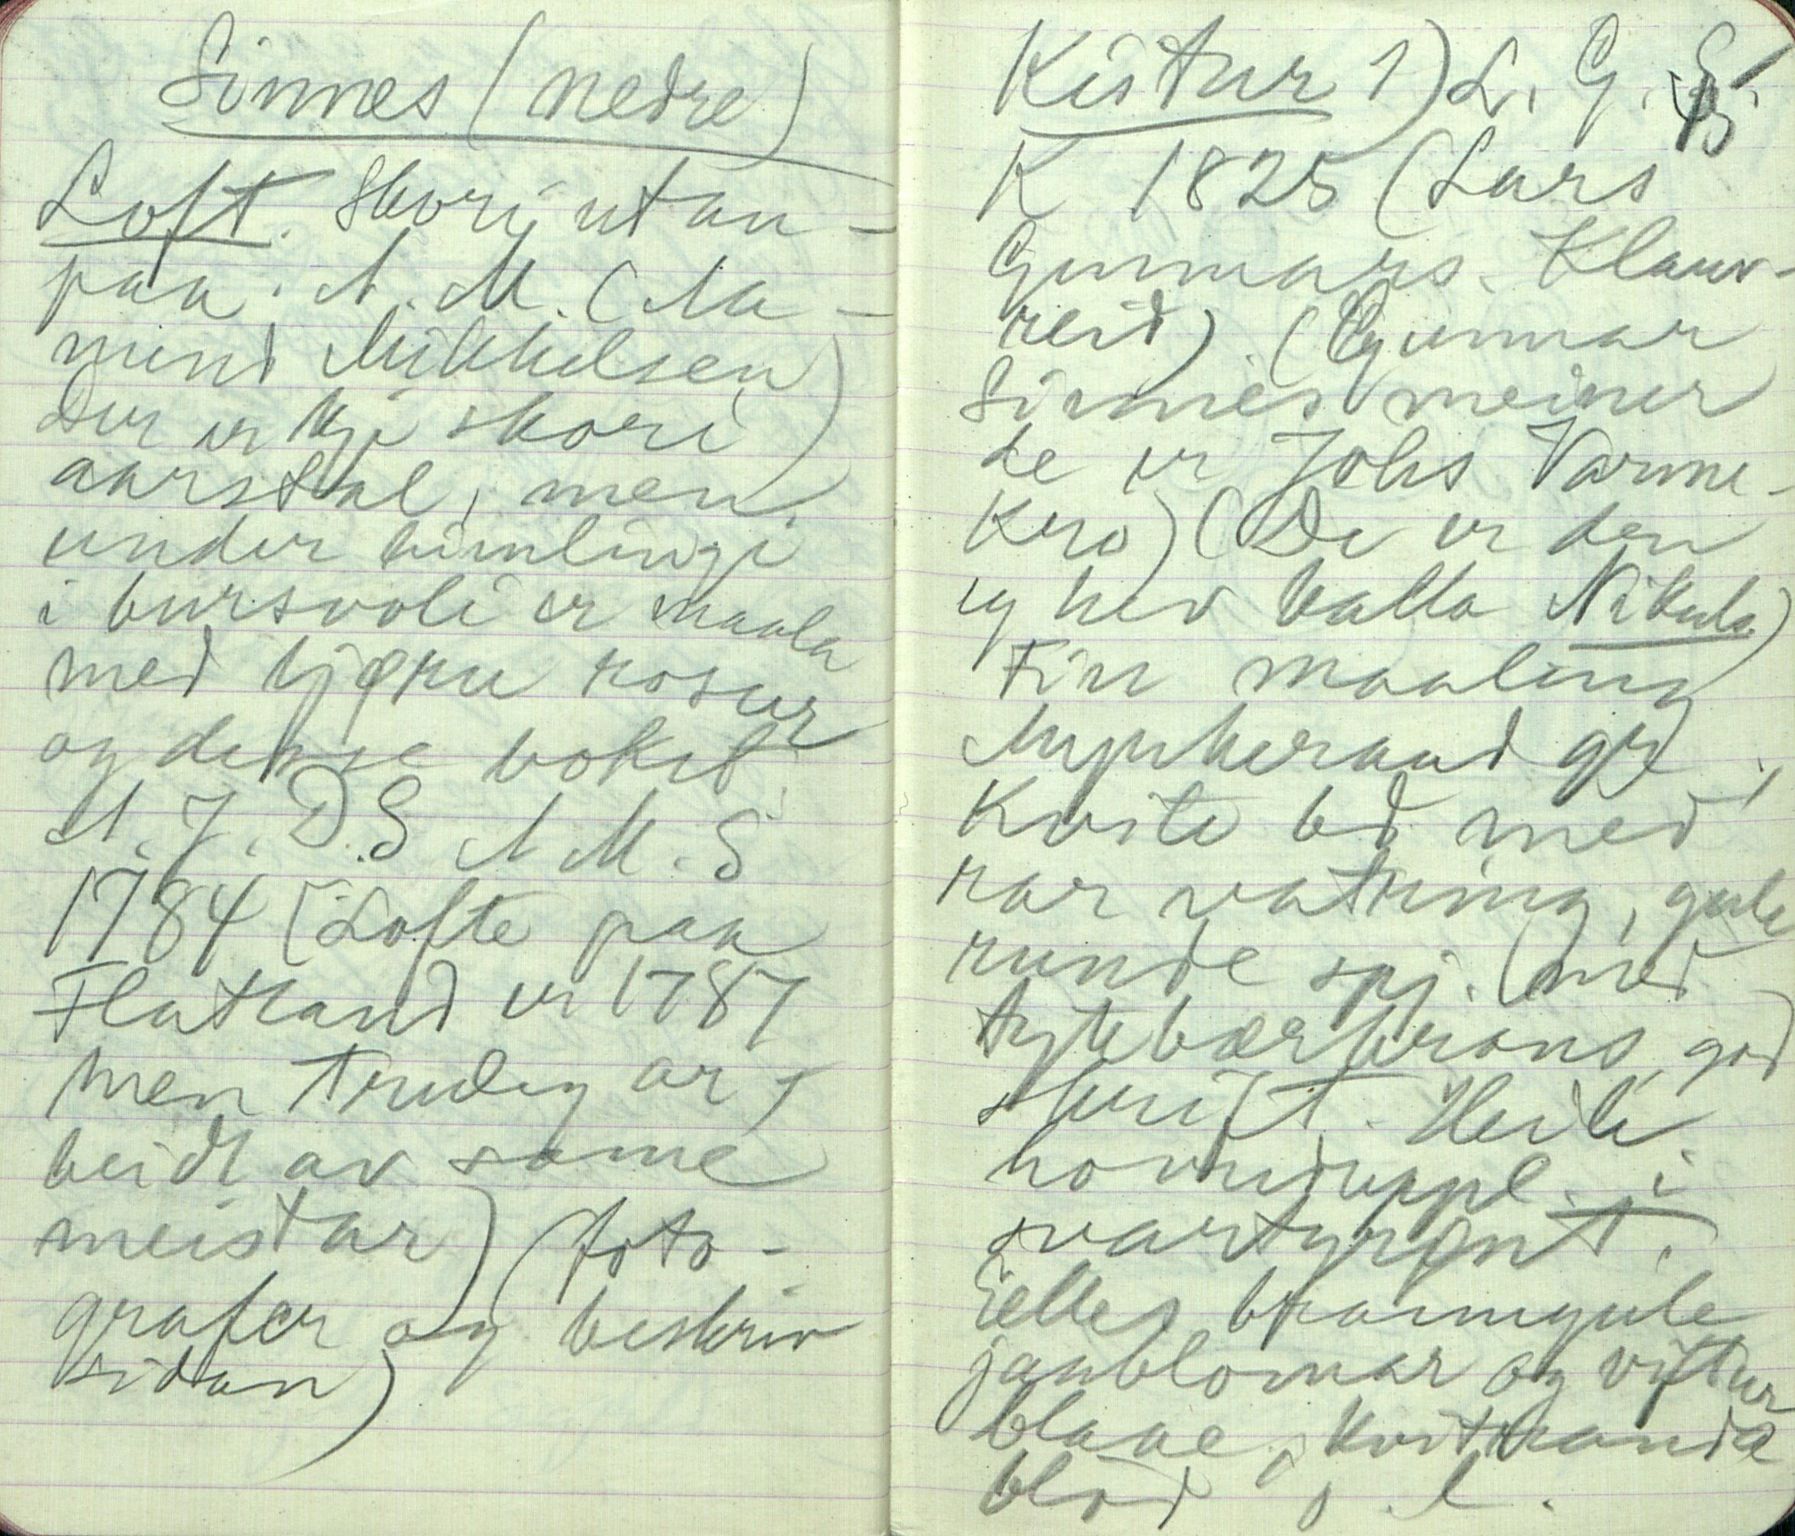 Sinnes (nedre)
Loft. Skori utan-
paa. A. M. (Aa-
mund Mikkelsen)
Der er kji skori
aarstal, men
under himlingi
i bursvoli er maala
med tjøru rosur
og desse bokst.
A. J. D. S A M. S
1784 (Lofte paa
Flatland er 1787
men truleg ar-
beidt av same
meistar) (foto-
grafer og beskriv
sidan)
Kistur 1) L. G. S.
K 1825 (Lars
Gunnars. Klauv-
reid). (Gunnar
Sinnes meiner
de er Johs Varme-
kro) (De er den
eg hev kalla Nikuls)
Fin maaling
Myrkeraud gr.
Kvite bd med
rar vatring, gule
runde spj. (med
tytebærkrans, god
skrift. Heile
hovudruppl. i
svartgrønt.
Elles branngule
janblomar og viftur
blaae, kvitranda
blad o. l.